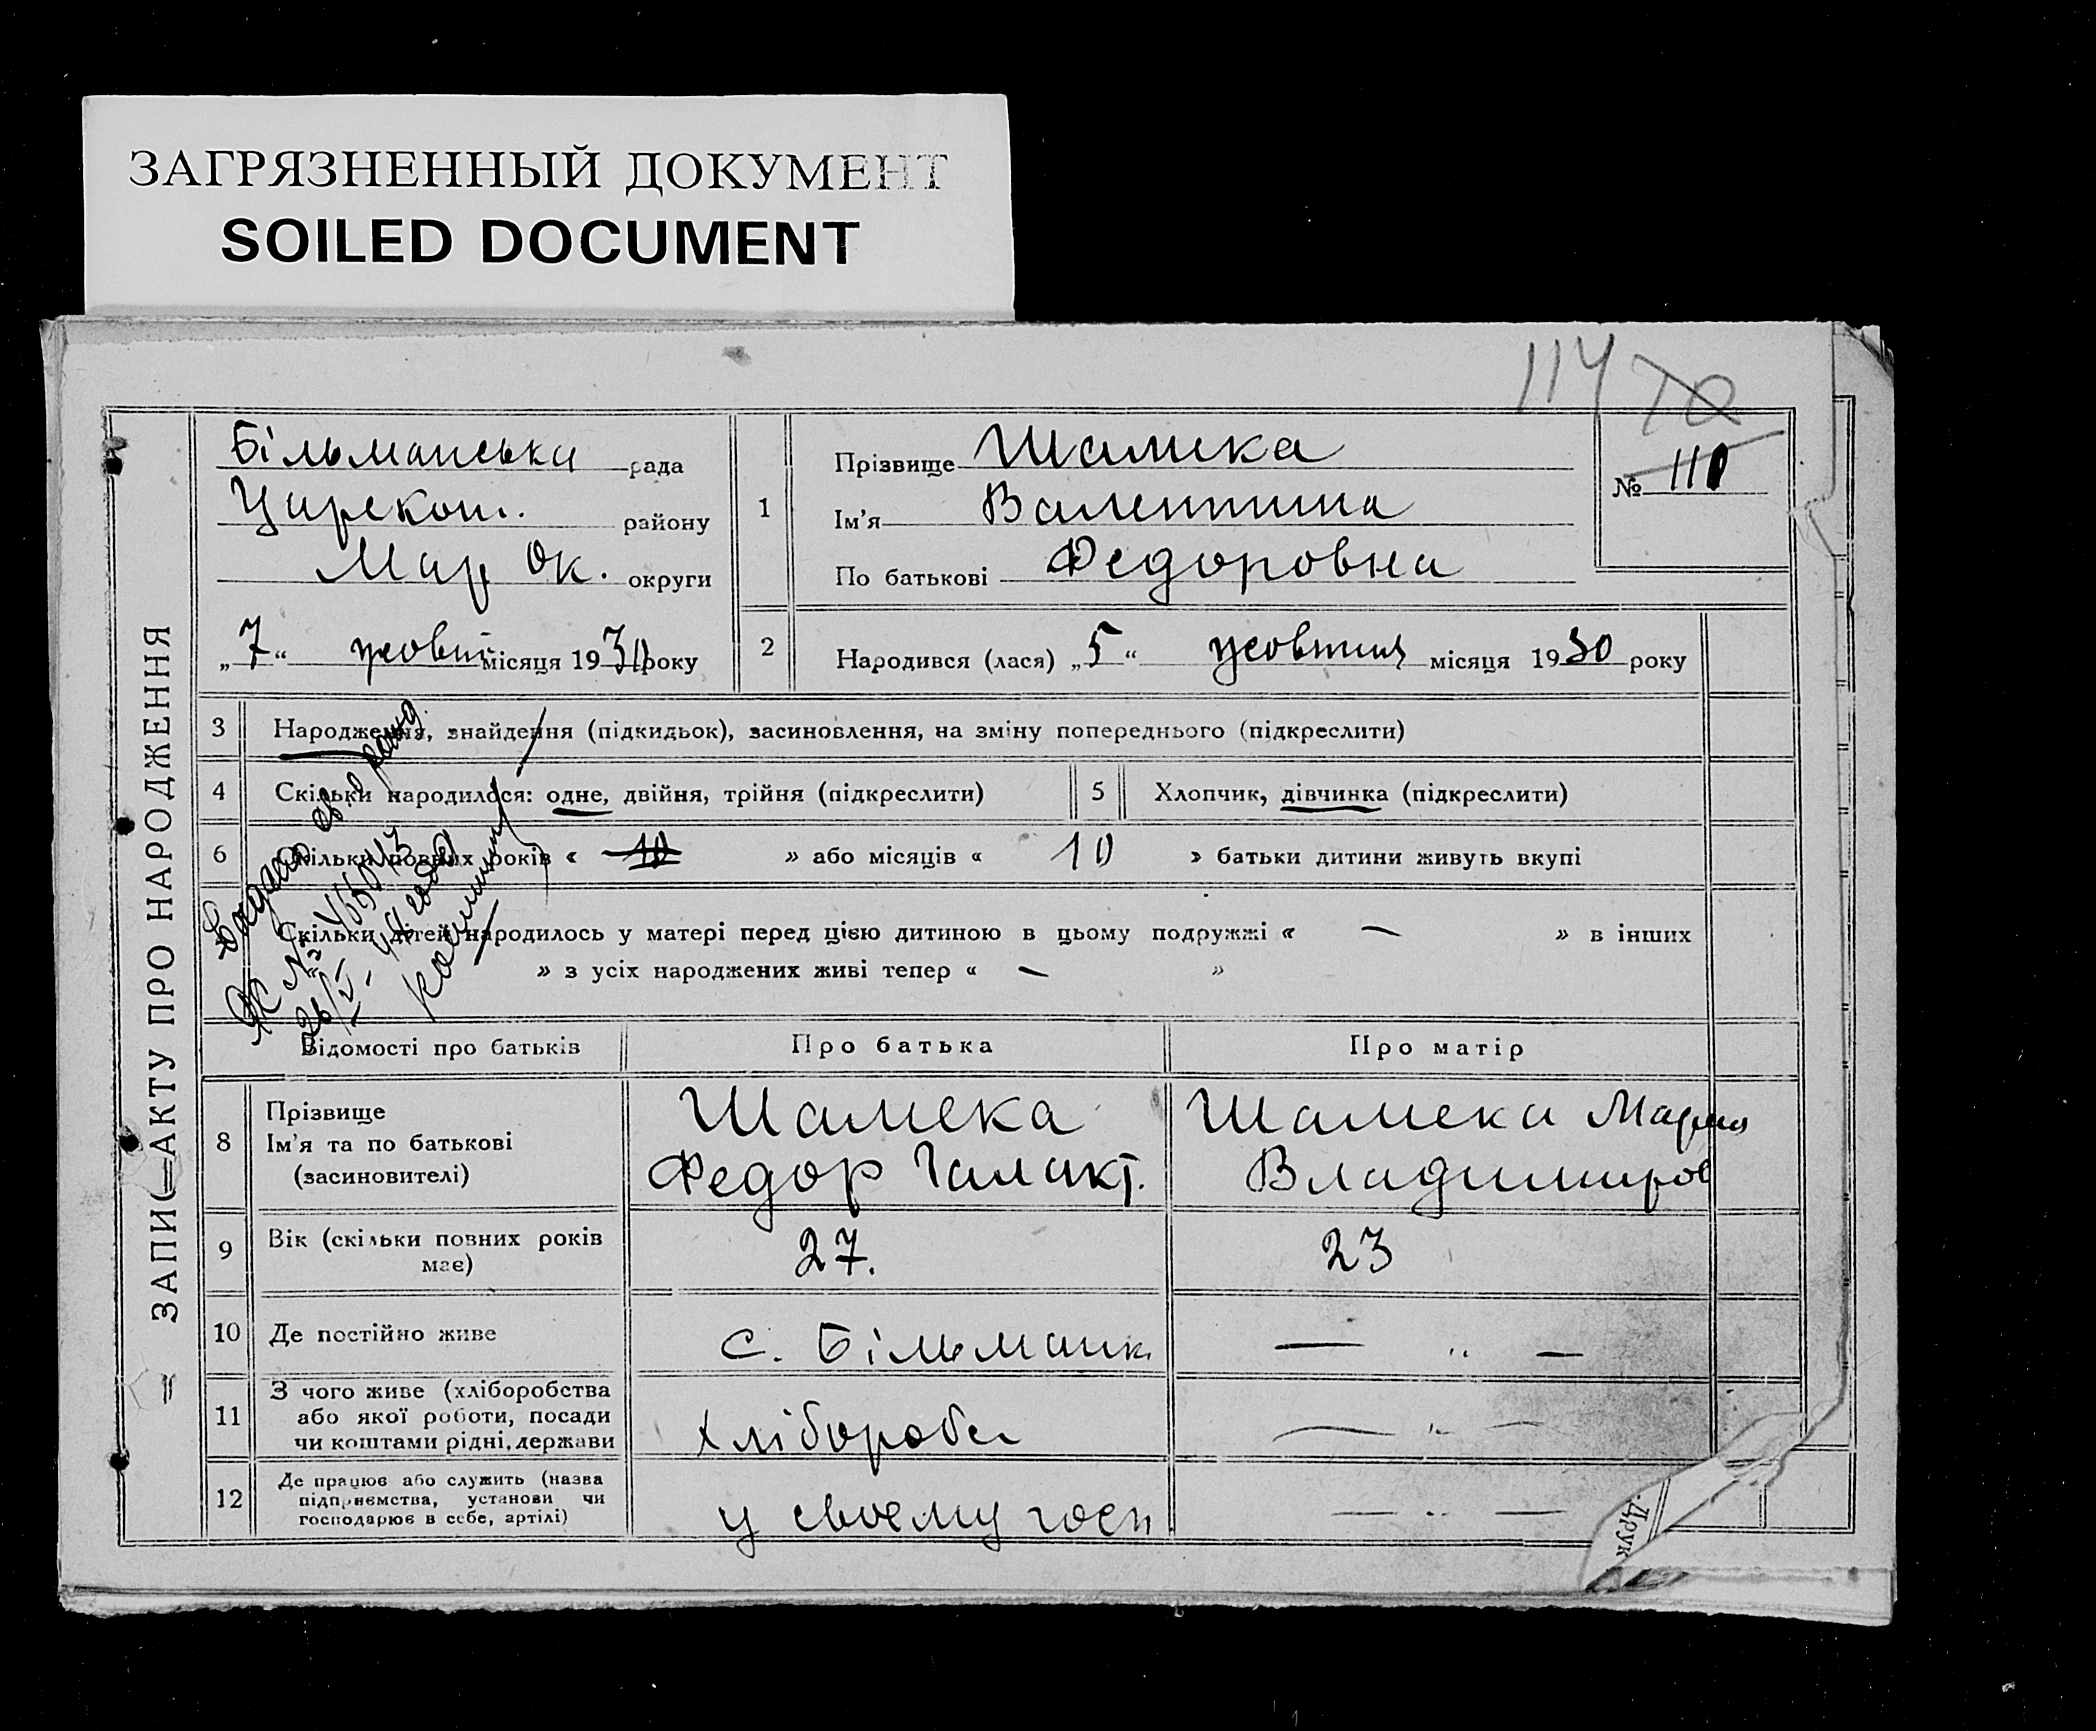 ЗАГРЯЗНЕННЫЙ ДОКУМЕНТ
SOILED DOCUMENT
114
ЗАПИС АКТУ ПРО НАРОДЖЕННЯ
Більманська рада
Царекон. району
Мар Ок. округи
„7“ жовт місяця 1930 року
1
Прізвище Шамека
Ім'я Валентина
По батькові Федоровна
№ 110
2
Народився (лася) „5“ жовтня місяця 1930 року
3 Народження, знайдення (підкидьок), засиновлення, на зміну попереднього (підкреслити)
4 Скільки народилося: одне, двійня, трійня (підкреслити)
5 Хлопчик, дівчинка (підкреслити)
6 Скільки повних років « 10 » або місяців « 10 » батьки дитини живуть вкупі
Скільки дітей народилось у матері перед цією дитиною в цьому подружжі « — » в інших
» з усіх народжених живі тепер « — »
Відомості про батьків Про батька Про матір
8 Прізвище
Ім'я та по батькові
(засиновителі)
Шамека
Федор Галакт.
Шамека Мария
Владимиров
9 Вік (скільки повних років
має)
27.
23
10 Де постійно живе
с. Більманк
— " —
11 З чого живе (хліборобства
або якої роботи, посади
чи коштами рідні, держави
хлібороба
— " —
12 Де працює або служить (назва
підприємства, установи чи
господарює в себе, артілі)
у своему госп
— " —
Друк